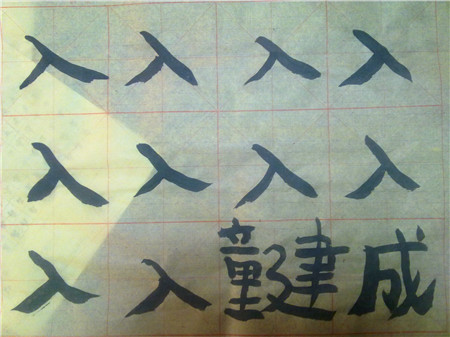 入入入入
入入入入
入入童建成